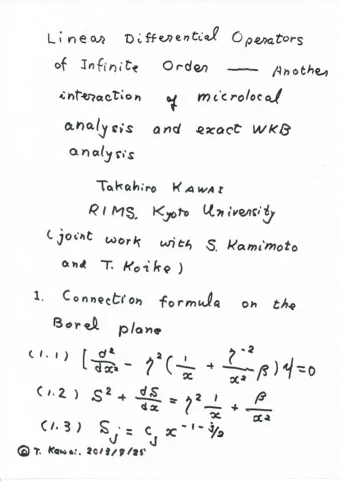 Linear Differential Operators
of Infinite Order — Another
interaction of microlocal
analysis and exact WKB
analysis
Takahiro KAWAI
RIMS, Kyoto University
(joint work with S. Kamimoto
and T. Koike)
1. Connection formula on the
Borel plane
(1.1) [d²/dx² - η²(1/x + η⁻²/x² β)]ψ=0
(1.2) S² + dS/dx = η² 1/x + β/x²
(1.3) S_j = c_j x^{-1-j/2}
© T. Kawai, 2013/